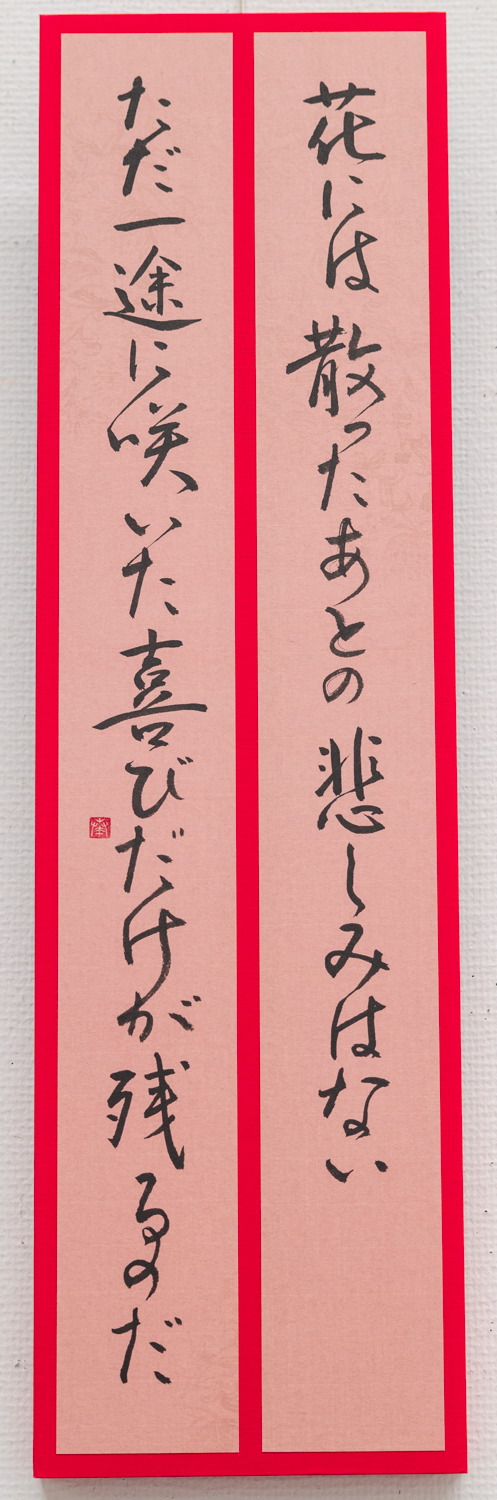 花には散ったあとの悲しみはない
ただ一途に咲いた喜びだけが残るのだ